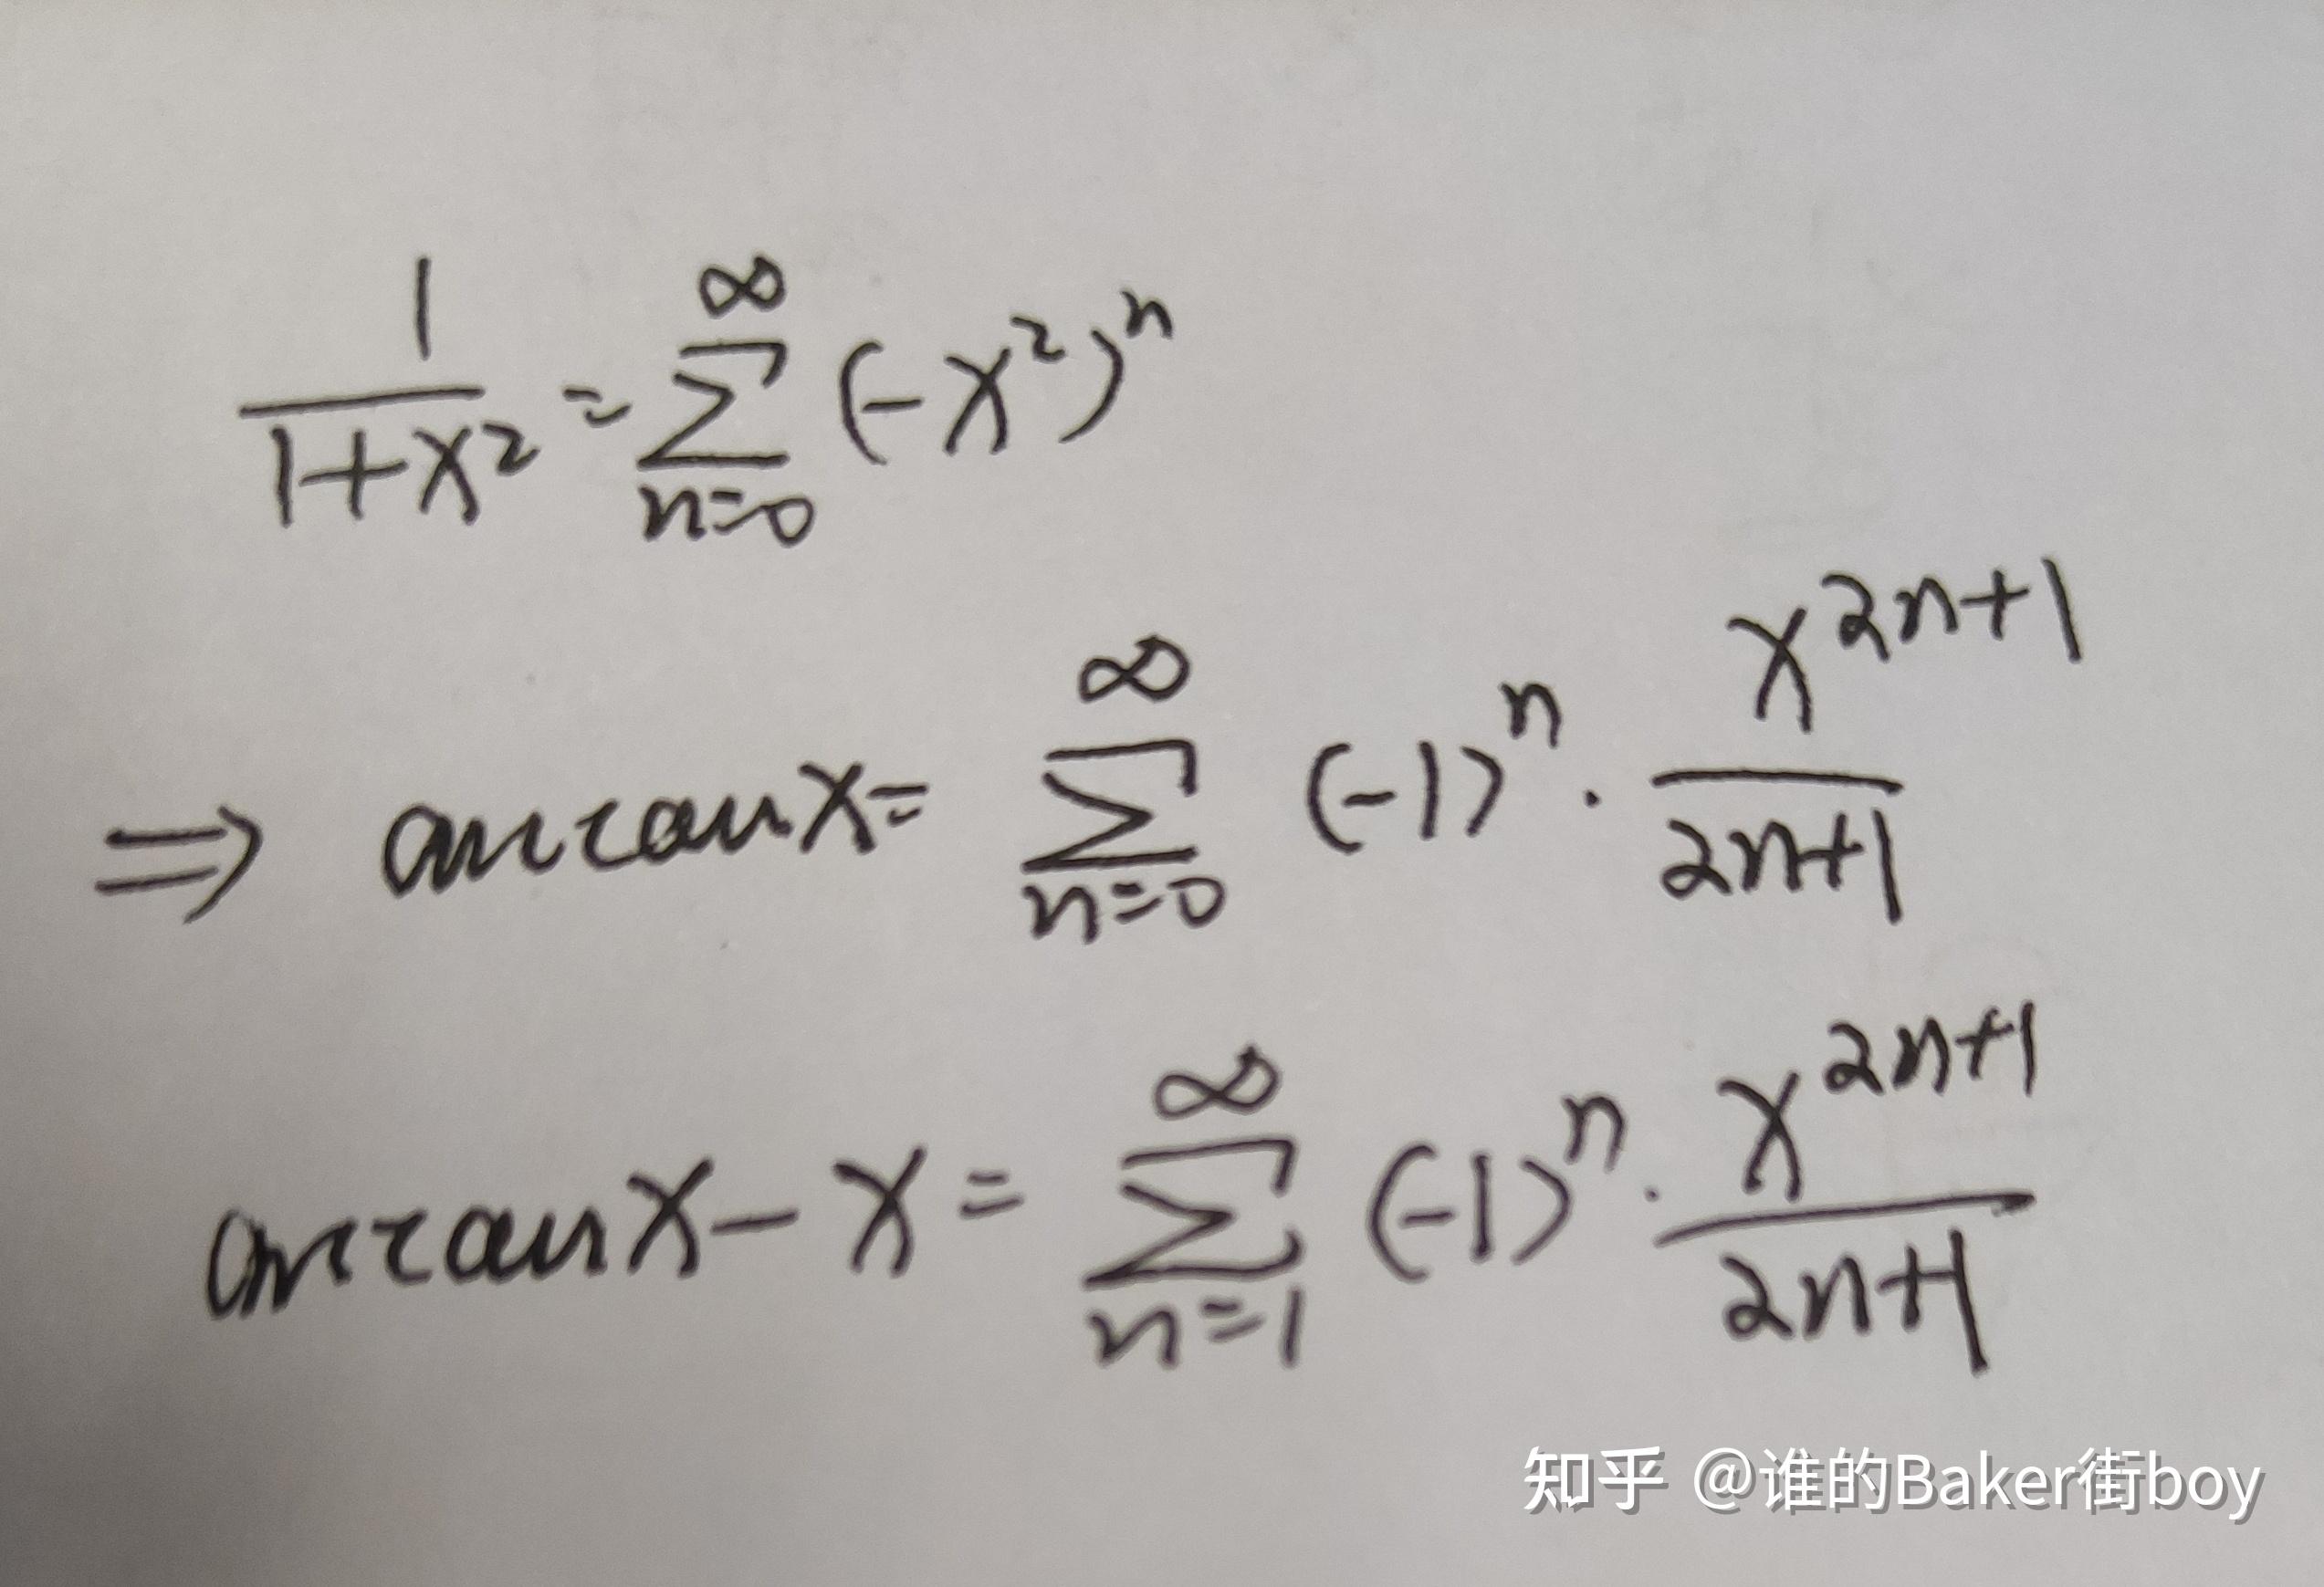 1/(1+x²) = ∑_{n=0}^{∞} (-x²)ⁿ
⇒ arctan x = ∑_{n=0}^{∞} (-1)ⁿ · x^{2n+1}/(2n+1)
arctan x - x = ∑_{n=1}^{∞} (-1)ⁿ · x^{2n+1}/(2n+1)
知乎 @谁的Baker街boy